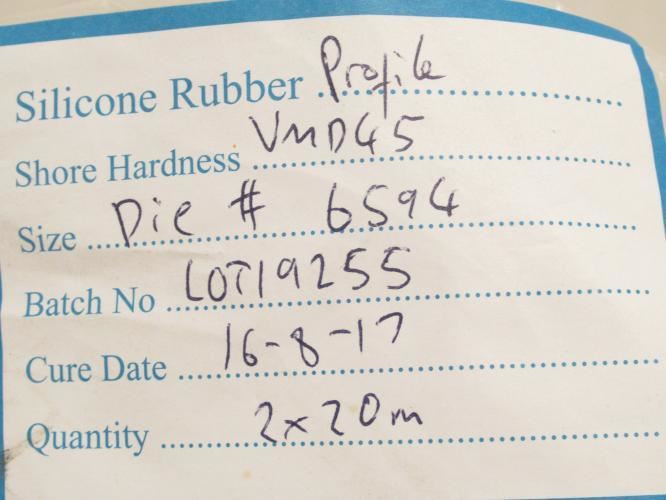 Silicone Rubber Profile
Shore Hardness VMD45
Size Die # 6594
Batch No LOT19255
Cure Date 16-8-17
Quantity 2x20m